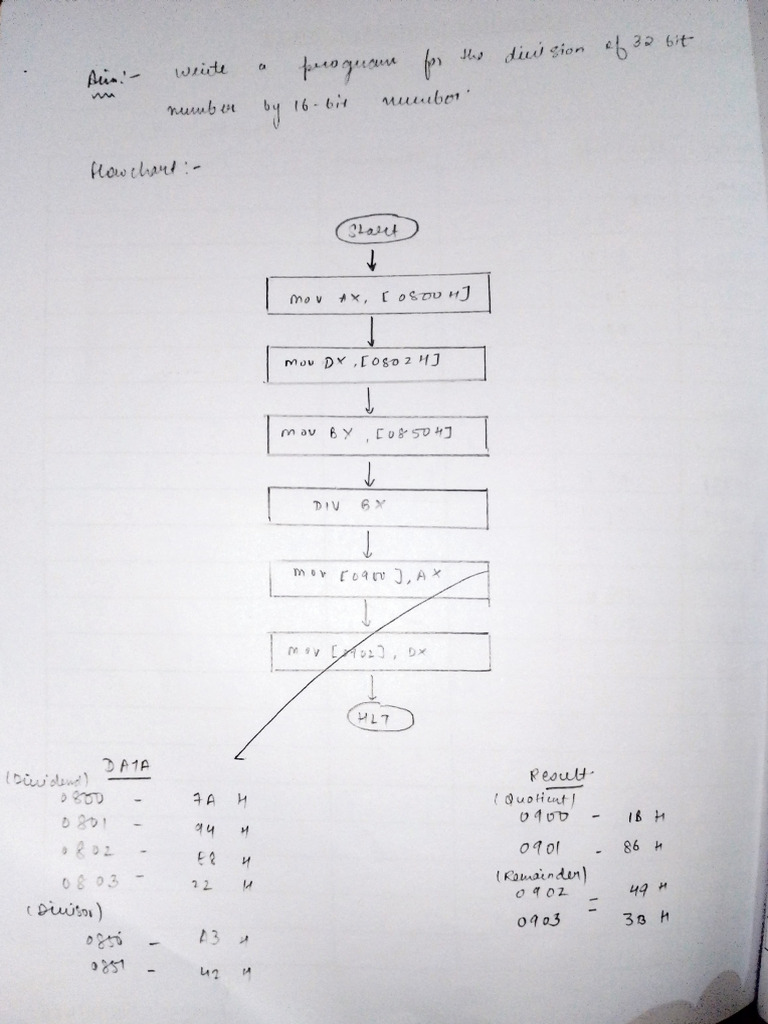 Aim:- Write a program for the division of 32 bit
number by 16-bit number.
Flowchart:-
Start
mov AX, [0800H]
mov DX, [0802H]
mov BX, [0850H]
DIV BX
mov [0900], AX
mov [0902], DX
HLT
DATA
(Dividend)
0800 - 7A H
0801 - 94 H
0802 - E8 H
0803 - 22 H
(Divisor)
0850 - A3 H
0851 - 42 H
Result
(Quotient)
0900 - 1B H
0901 - 86 H
(Remainder)
0902 = 49 H
0903 = 3B H